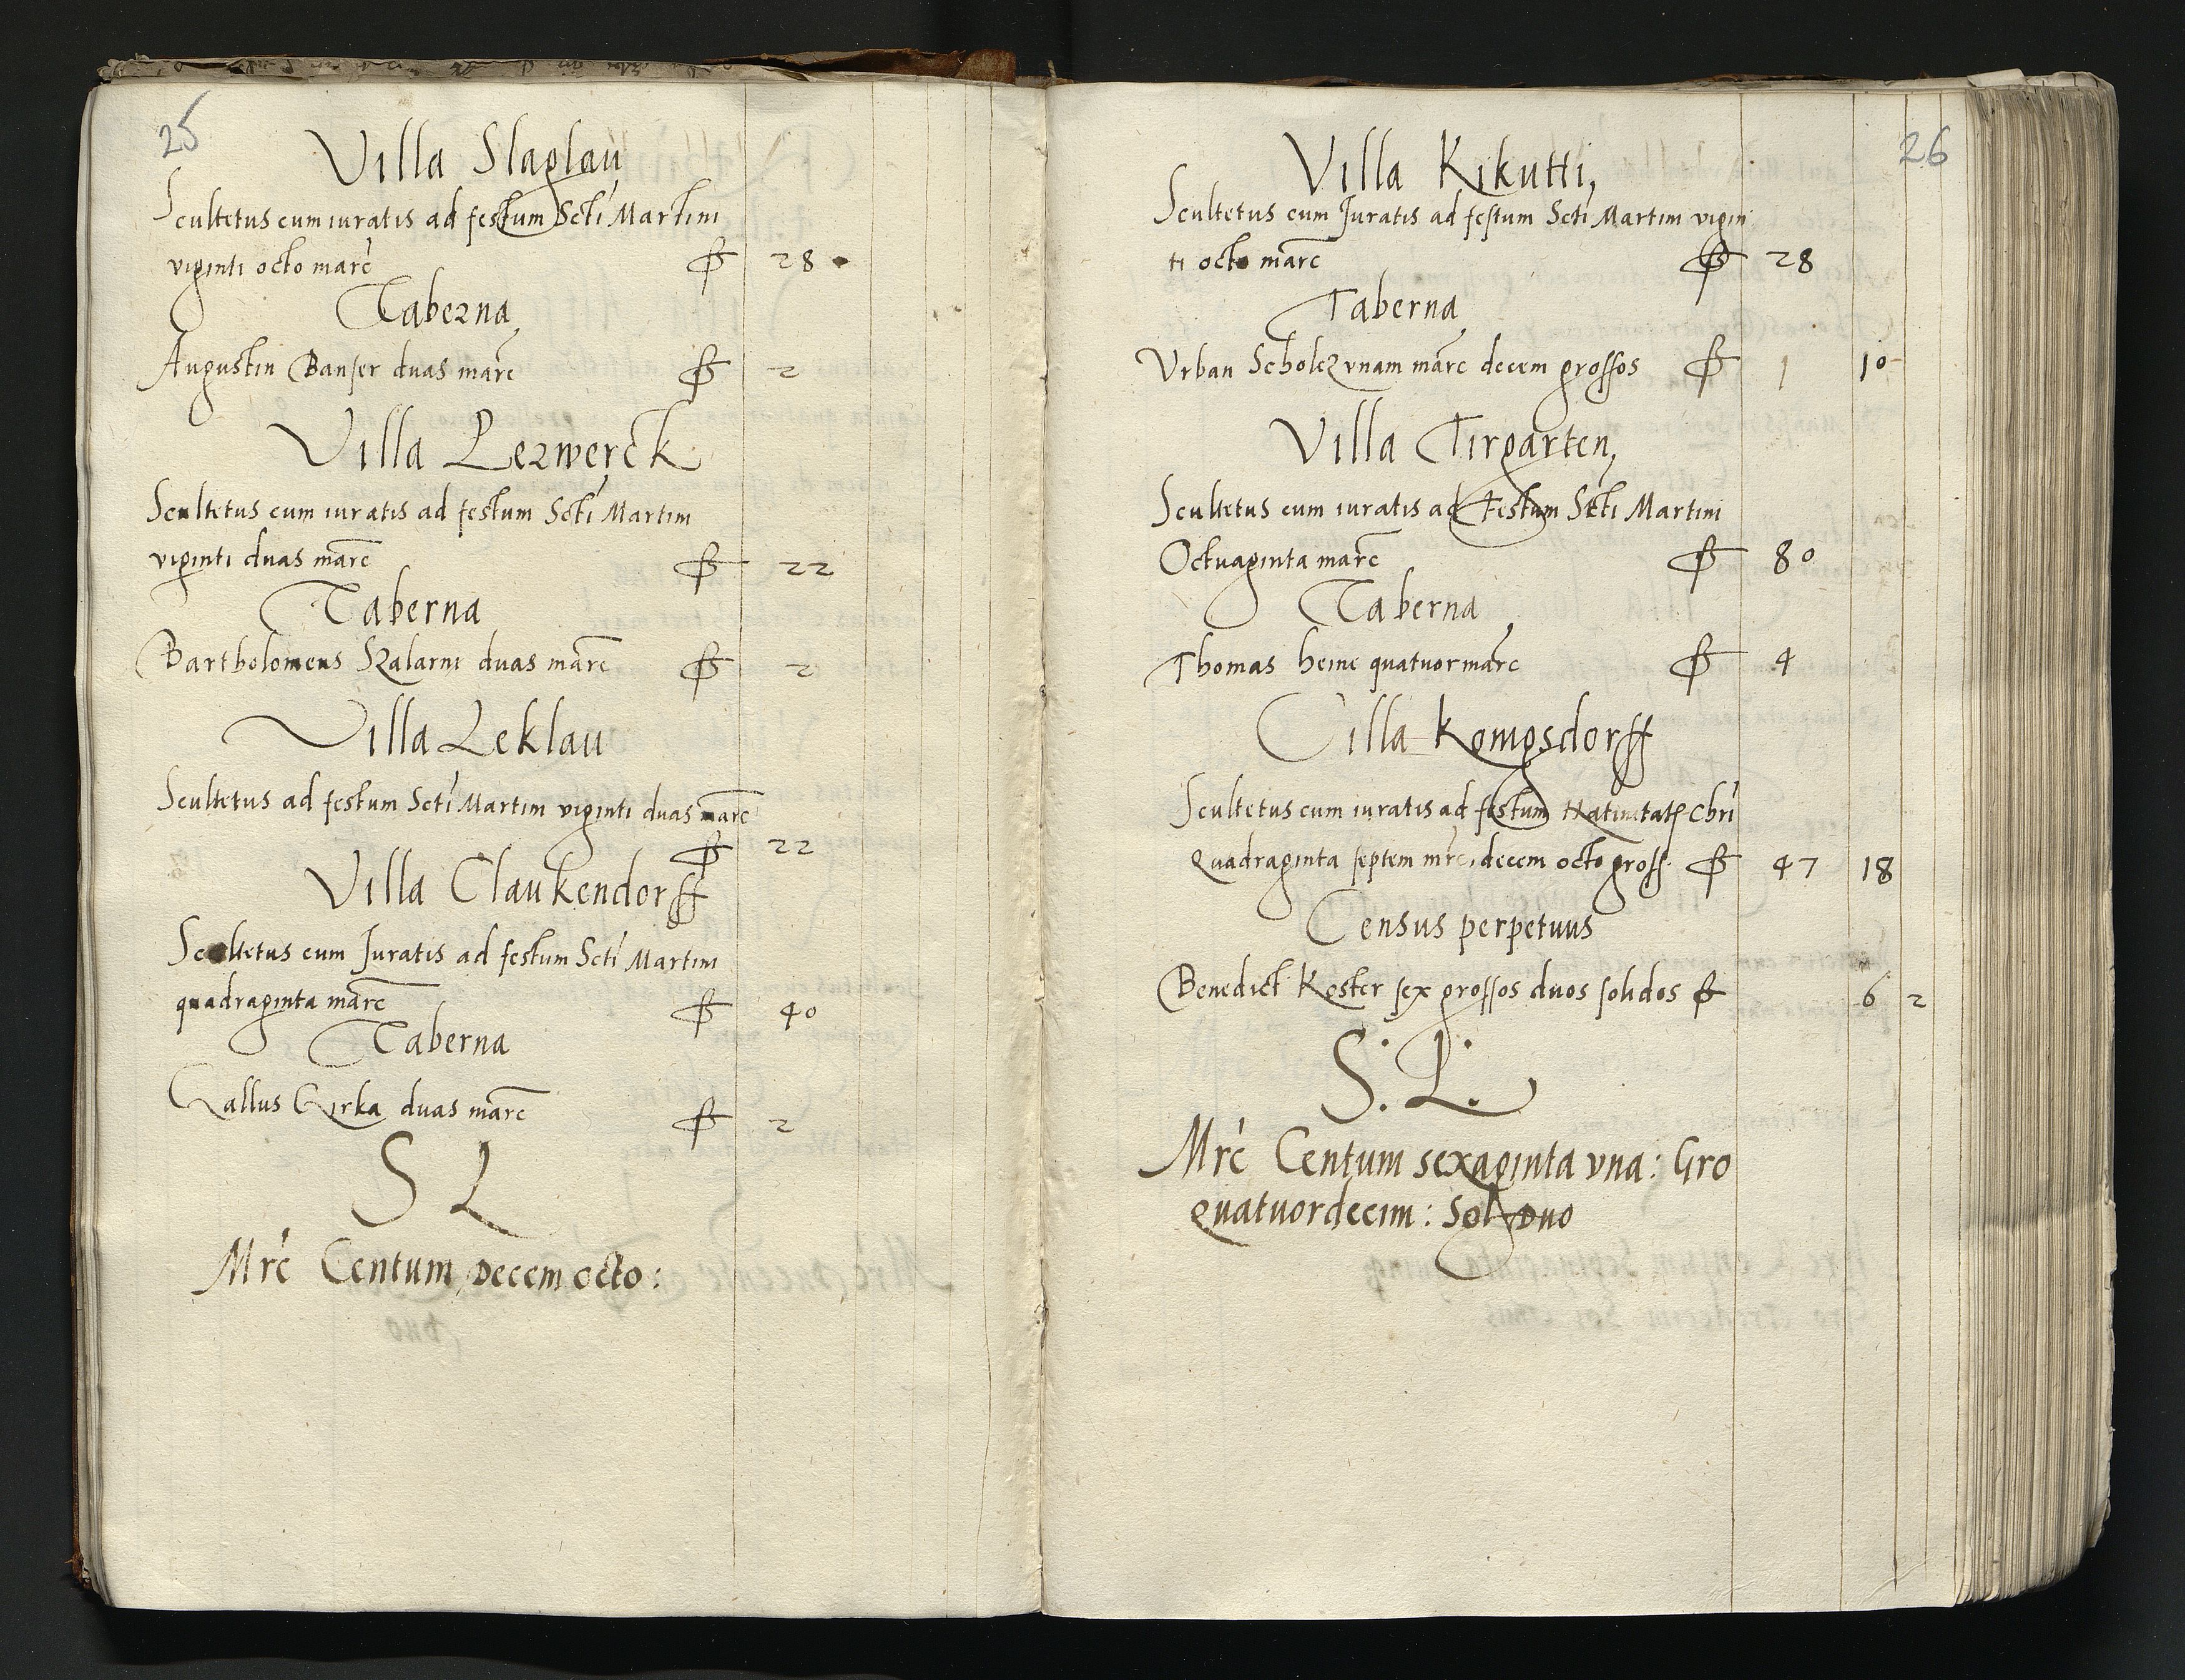 25
Villa Slaglau
Scultetus cum iuratis ad festum Scti Martini
viginti octo marc ꝑ 28
Taberna
Augustin Banser duas marc ꝑ 2
Villa Lezwerck
Scultetus cum iuratis ad festum Scti Martini
viginti duas marc ꝑ 22
Taberna
Bartholomeus Szalarni duas marc ꝑ 2
Villa Leklau
Scultetus ad festum Scti Martini viginti duas marc
ꝑ 22
Villa Claukendorff
Scultetus cum Juratis ad festum Scti Martini
quadraginta marc ꝑ 40
Taberna
Gallus Girka duas marc ꝑ 2
S L
Mrc Centum decem octo:
26
Villa Kikutti,
Scultetus cum Juratis ad festum Scti Martini vigin
ti octo marc ꝑ 28
Taberna
Urban Scholcz vnam marc decem grossos ꝑ 1 10
Villa Tirgarten,
Scultetus cum iuratis ad Festum Scti Martini
Octuaginta marc ꝑ 80
Taberna
Thomas heine quatuor marc ꝑ 4
Villa Komgsdorff
Scultetus cum iuratis ad festum Natiuitatis Chri
Quadraginta septem mrc, decem octo gross. ꝑ 47 18
Census perpetuus
Benedict Koster sex grossos duos solidos ꝑ 6 2
S. L.
Mrc Centum sexaginta vna: Gro
quatuordecim: Sol duo